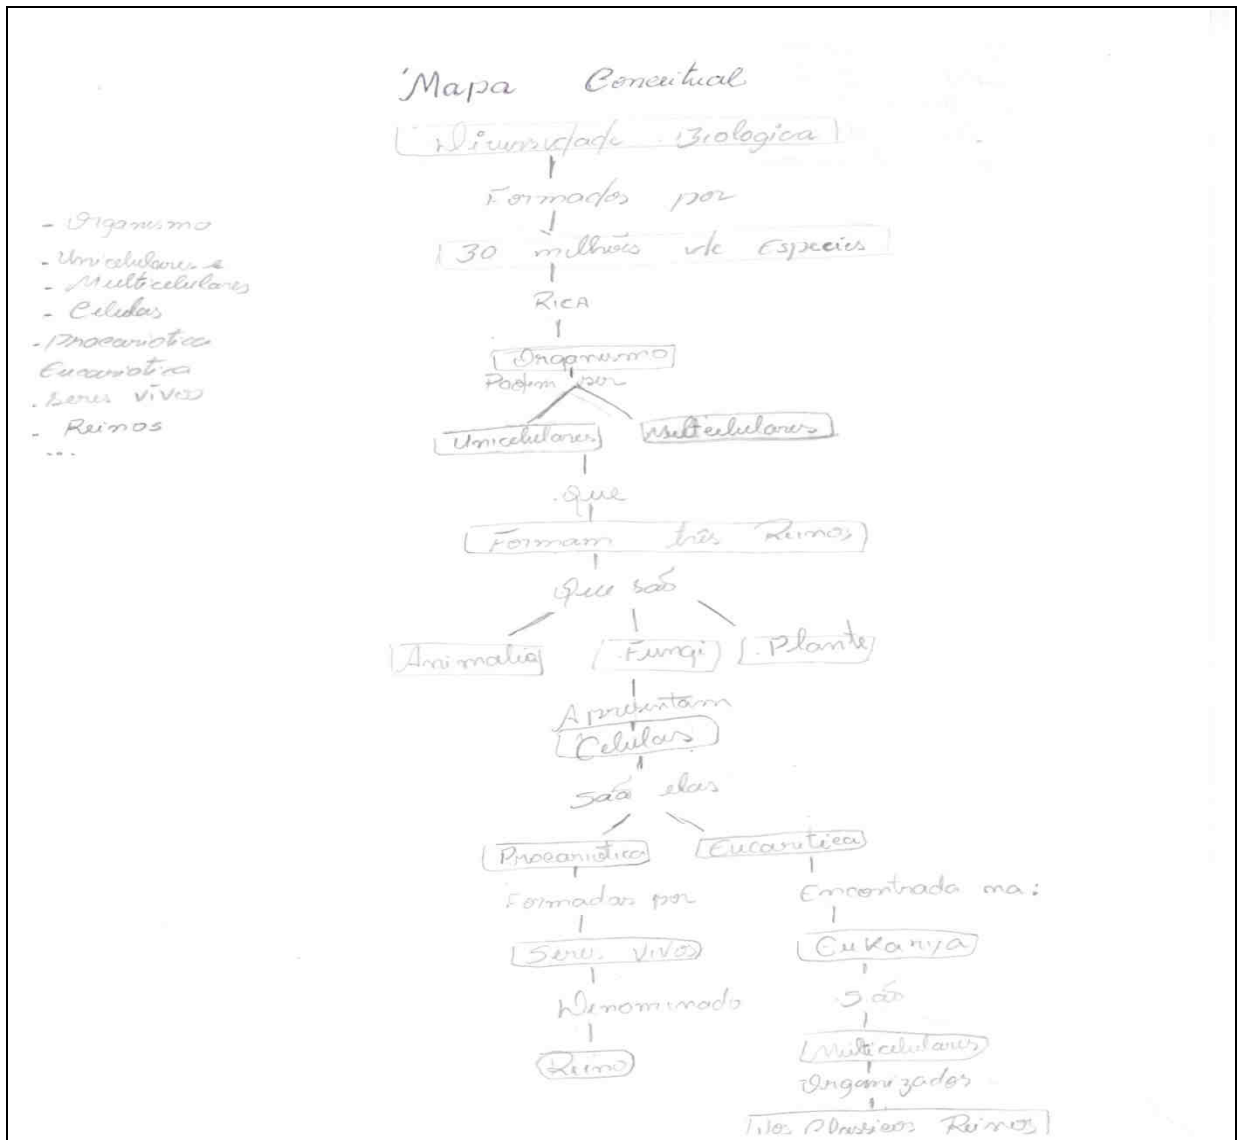 Mapa Conceitual
Diversidade Biologica
Formados por
30 milhões de Especies
RICA
Organismo
Podem por
Unicelulares Multicelulares
que
Formam três Reinos
Que são
Animalia Fungi Plante
Apresentam
Celulas
são elas
Procariotica Eucaritica
Formadas por Encontrada na:
Seres Vivos Eukarya
Denominado São
Reino Multicelulares
Organizados
Nos Classicos Reinos
- Organismo
- Unicelulares e
- Multicelulares
- Celulas
- Procariotica
Eucariotica
. Seres vivos
- Reinos
...